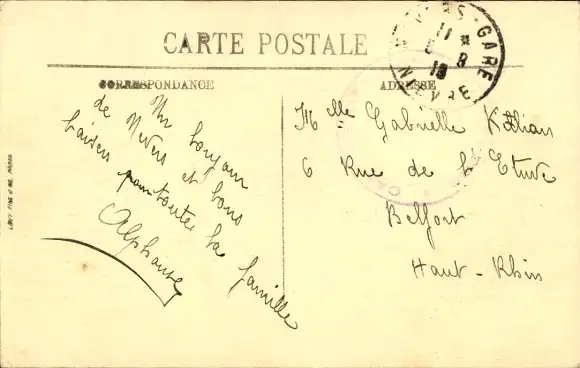 CARTE POSTALE
CORRESPONDANCE
ADRESSE
NEVERS-GARE
11 *
8
18
NIEVRE
Un bonjour
de Nevers et bons
baisers pour toute la famille
Alphonse
Mlle Gabrielle
6 Rue de l'Etuve
Belfort
Haut-Rhin